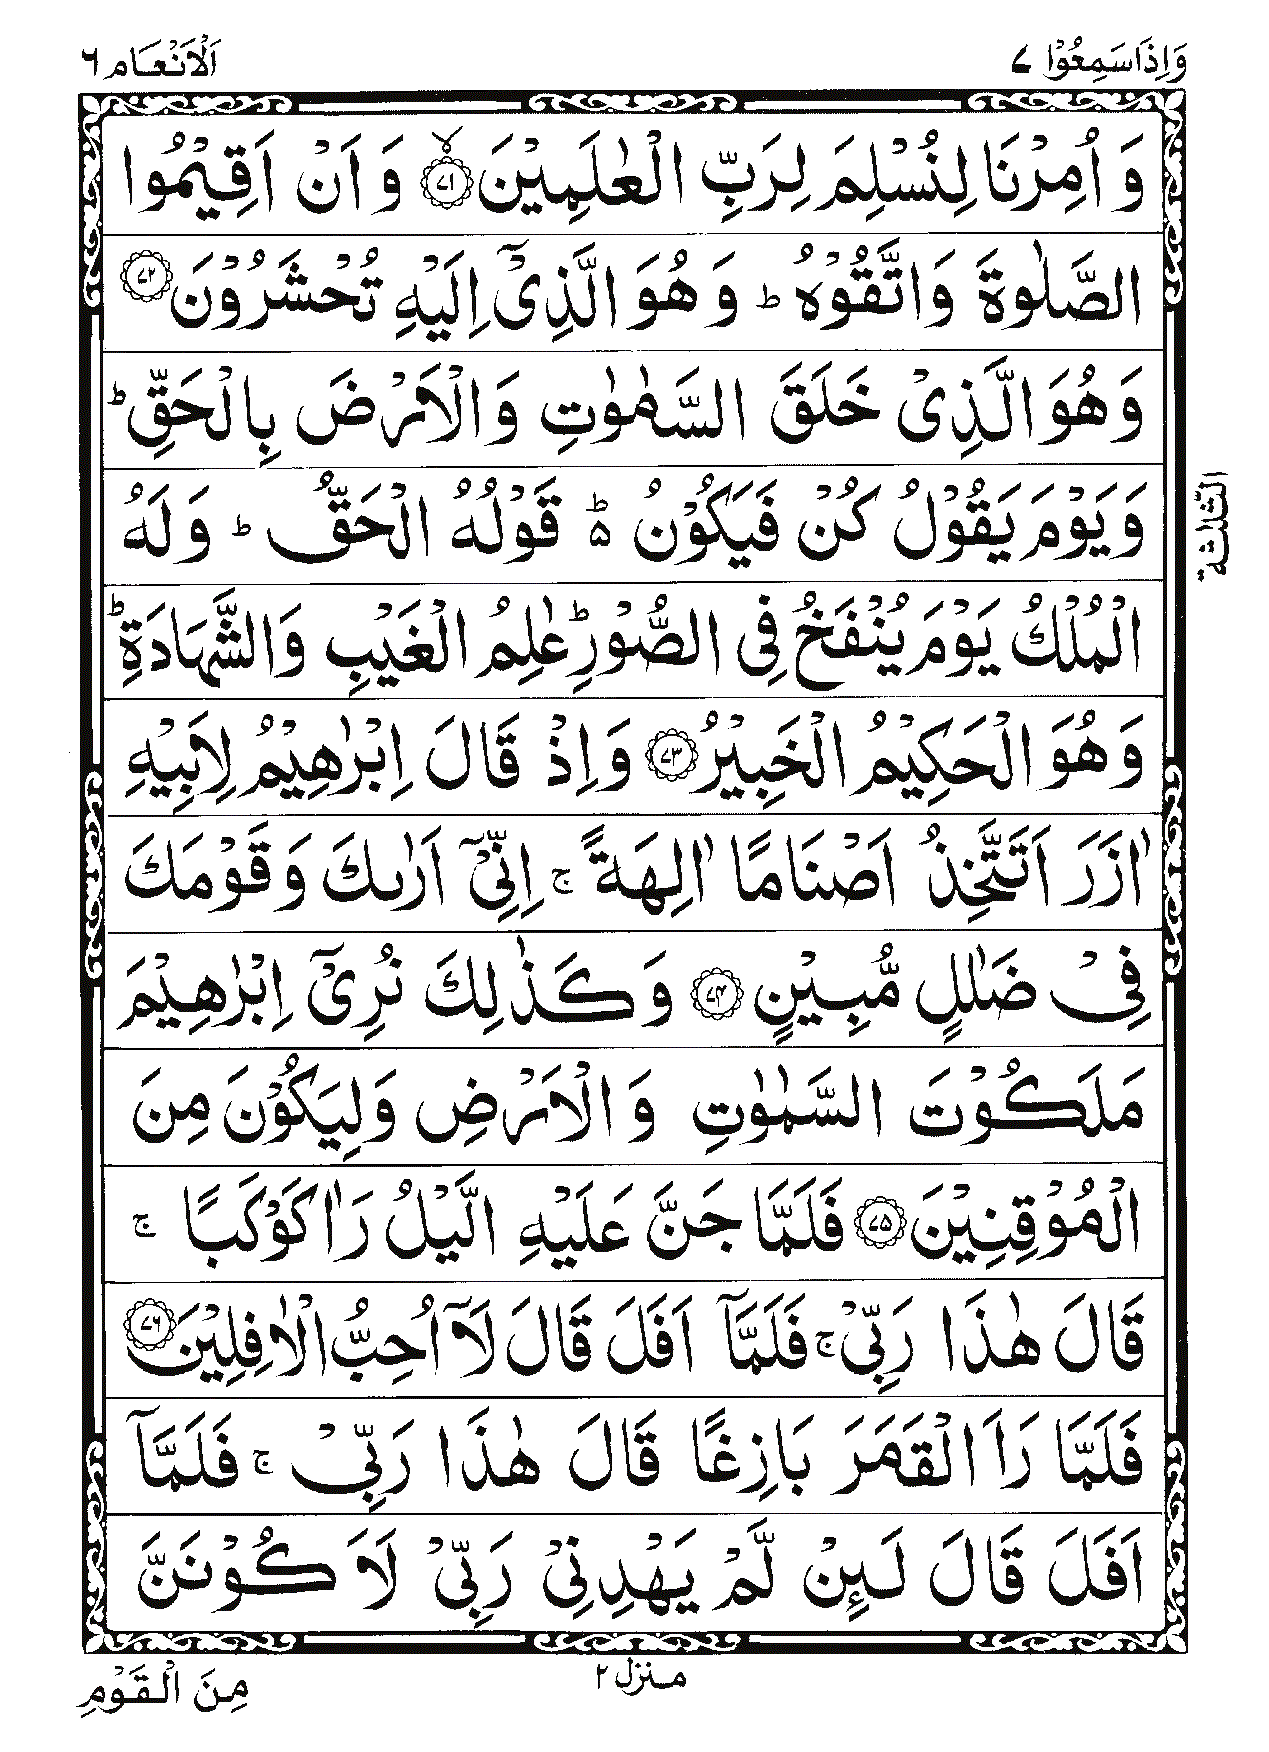 وَاِذَاسَمِعُوْا ٧
اَلْاَنْعَام ٦
وَ اُمِرْنَا لِنُسْلِمَ لِرَبِّ الْعٰلَمِيْنَ ۙ﴿٧١﴾ وَ اَنْ اَقِيْمُوا
الصَّلٰوةَ وَاتَّقُوْهُ ؕ وَ هُوَ الَّذِیْۤ اِلَيْهِ تُحْشَرُوْنَ ﴿٧٢﴾
وَهُوَ الَّذِیْ خَلَقَ السَّمٰوٰتِ وَالْاَرْضَ بِالْحَقِّ ؕ
وَيَوْمَ يَقُوْلُ كُنْ فَيَكُوْنُ ؕ۬ قَوْلُهُ الْحَقُّ ؕ وَ لَهُ
الْمُلْكُ يَوْمَ يُنْفَخُ فِی الصُّوْرِ ؕ عٰلِمُ الْغَيْبِ وَالشَّهَادَةِ ؕ
وَهُوَ الْحَكِيْمُ الْخَبِيْرُ ﴿٧٣﴾ وَاِذْ قَالَ اِبْرٰهِيْمُ لِاَبِيْهِ
اٰزَرَ اَتَتَّخِذُ اَصْنَامًا اٰلِهَةً ۚ اِنِّیْۤ اَرٰىكَ وَقَوْمَكَ
فِیْ ضَلٰلٍ مُّبِيْنٍ ﴿٧٤﴾ وَ كَذٰلِكَ نُرِیْۤ اِبْرٰهِيْمَ
مَلَكُوْتَ السَّمٰوٰتِ وَ الْاَرْضِ وَلِيَكُوْنَ مِنَ
الْمُوْقِنِيْنَ ﴿٧٥﴾ فَلَمَّا جَنَّ عَلَيْهِ الَّيْلُ رَاٰ كَوْكَبًا ۚ
قَالَ هٰذَا رَبِّیْ ۚ فَلَمَّاۤ اَفَلَ قَالَ لَاۤ اُحِبُّ الْاٰفِلِيْنَ ﴿٧٦﴾
فَلَمَّا رَاَ الْقَمَرَ بَازِغًا قَالَ هٰذَا رَبِّیْ ۚ فَلَمَّاۤ
اَفَلَ قَالَ لَئِنْ لَّمْ يَهْدِنِیْ رَبِّیْ لَاَ كُوْنَنَّ
الثلثة
منزل ٢
مِنَ الْقَوْمِ